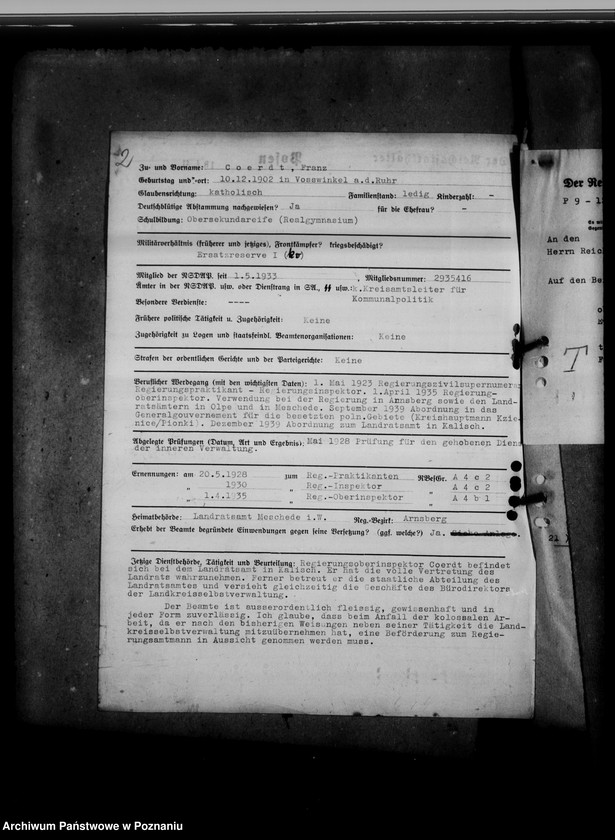 2
Zu- und Vorname: Coerdt, Franz
Geburtstag und -ort: 10.12.1902 in Vosswinkel a.d.Ruhr
Glaubensrichtung: katholisch Familienstand: ledig Kinderzahl: -
Deutschblütige Abstammung nachgewiesen? Ja für die Ehefrau? -
Schulbildung: Obersekundareife (Realgymnasium)
Militärverhältnis (früheres und jetziges), Frontkämpfer? kriegsbeschädigt?
Ersatzreserve I (kv)
Mitglied der NSDAP. seit 1.5.1933, Mitgliedsnummer: 2935416
Ämter in der NSDAP. usw. oder Dienstrang in SA., SS usw.: k.Kreisamtsleiter für
Kommunalpolitik
Besondere Verdienste: ----
Frühere politische Tätigkeit u. Zugehörigkeit: Keine
Zugehörigkeit zu Logen und staatsfeindl. Beamtenorganisationen: Keine
Strafen der ordentlichen Gerichte und der Parteigerichte: Keine
Beruflicher Werdegang (mit den wichtigsten Daten): 1. Mai 1923 Regierungszivilsupernumerar
Regierungspraktikant - Regierungsinspektor. 1.April 1935 Regierung-
oberinspektor. Verwendung bei der Regierung in Arnsberg sowie den Land-
ratsämtern in Olpe und in Meschede. September 1939 Abordnung in das
Generalgouvernement für die besetzten poln.Gebiete (Kreishauptmann Kzie-
nice/Pionki). Dezember 1939 Abordnung zum Landratsamt in Kalisch.
Abgelegte Prüfungen (Datum, Art und Ergebnis): Mai 1928 Prüfung für den gehobenen Diens
der inneren Verwaltung.
Ernennungen: am 20.5.1928 zum Reg.-Praktikanten RBesGr. A 4 c 2
" 1930 " Reg.-Inspektor " A 4 c 2
" 1.4.1935 " Reg.-Oberinspektor " A 4 b 1
Heimatbehörde: Landratsamt Meschede i.W. Reg.-Bezirk: Arnsberg
Erhebt der Beamte begründete Einwendungen gegen seine Versetzung? (ggf. welche?) Ja.
Jetzige Dienstbehörde, Tätigkeit und Beurteilung: Regierungsoberinspektor Coerdt befindet
sich bei dem Landratsamt in Kalisch. Er hat die volle Vertretung des
Landrats wahrzunehmen. Ferner betreut er die staatliche Abteilung des
Landratsamtes und versieht gleichzeitig die Geschäfte des Bürodirektors
der Landkreisselbstverwaltung.
Der Beamte ist ausserordentlich fleissig, gewissenhaft und in
jeder Form zuverlässig. Ich glaube, dass beim Anfall der kolossalen Ar-
beit, da er nach den bisherigen Weisungen neben seiner Tätigkeit die Land-
kreisselbstverwaltung mitzuübernehmen hat, eine Beförderung zum Regie-
rungsamtmann in Aussicht genommen werden muss.
Der Re
P 9 - 1
An den
Herrn Reic
Auf den Be
T
21)
Archiwum Państwowe w Poznaniu